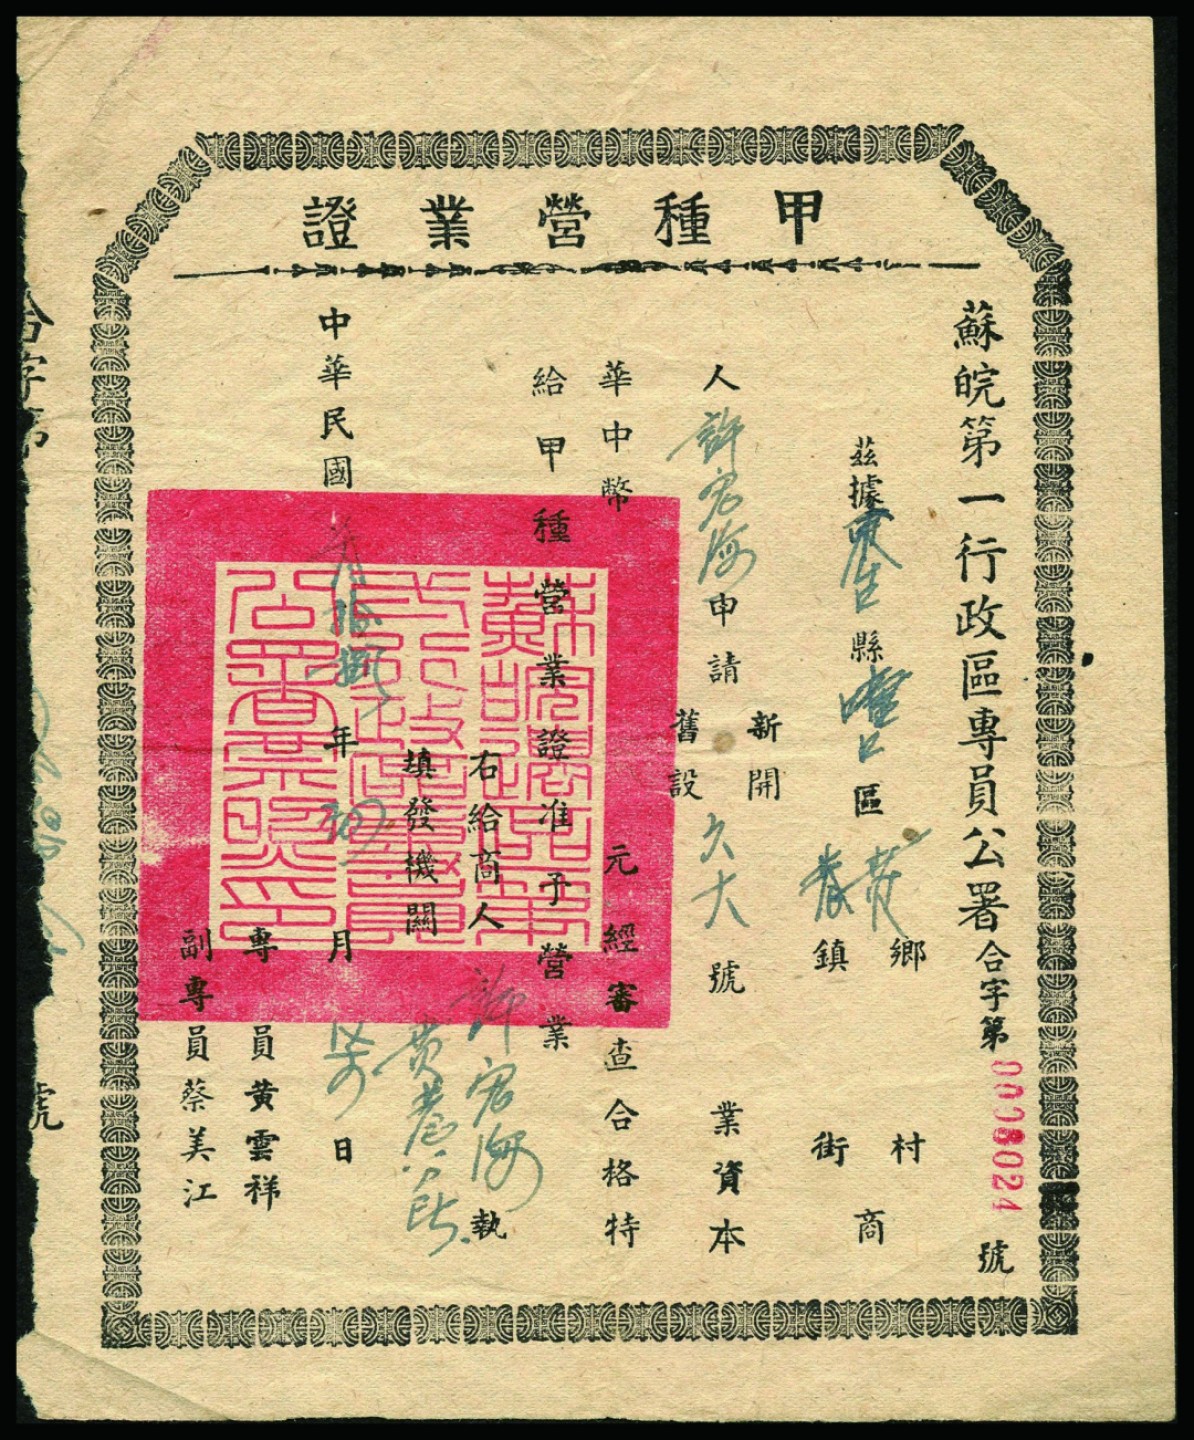 甲種營業證
蘇皖第一行政區專員公署合字第0008024號
茲據東台縣 口區 鄉鎮 村街 商
人許宏海申請 新開 舊設 久大號 業資本
華中幣 元經審查合格特
給甲種營業證准予營業
右給商人許宏海執
填發機關
中華民國 年 月 日
專員黃雲祥
副專員蔡美江
合字第 號